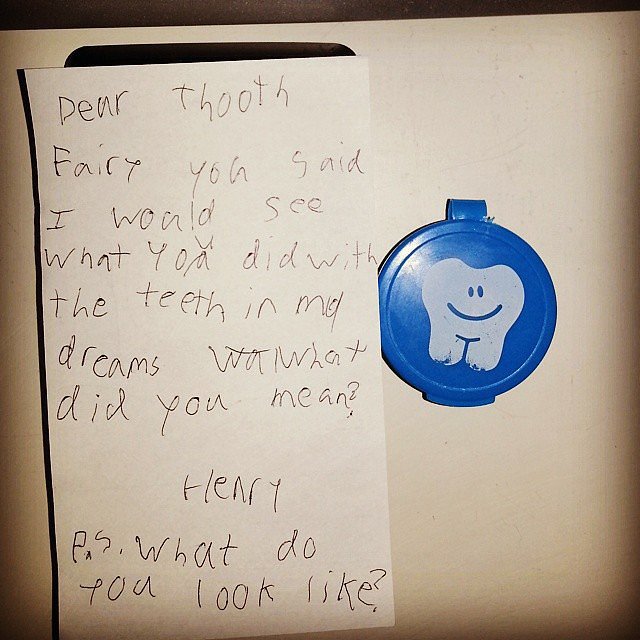 Dear Thooth
Fairy you said
I would see
what you did with
the teeth in my
dreams what
did you mean?
Henry
P.S. What do
you look like?